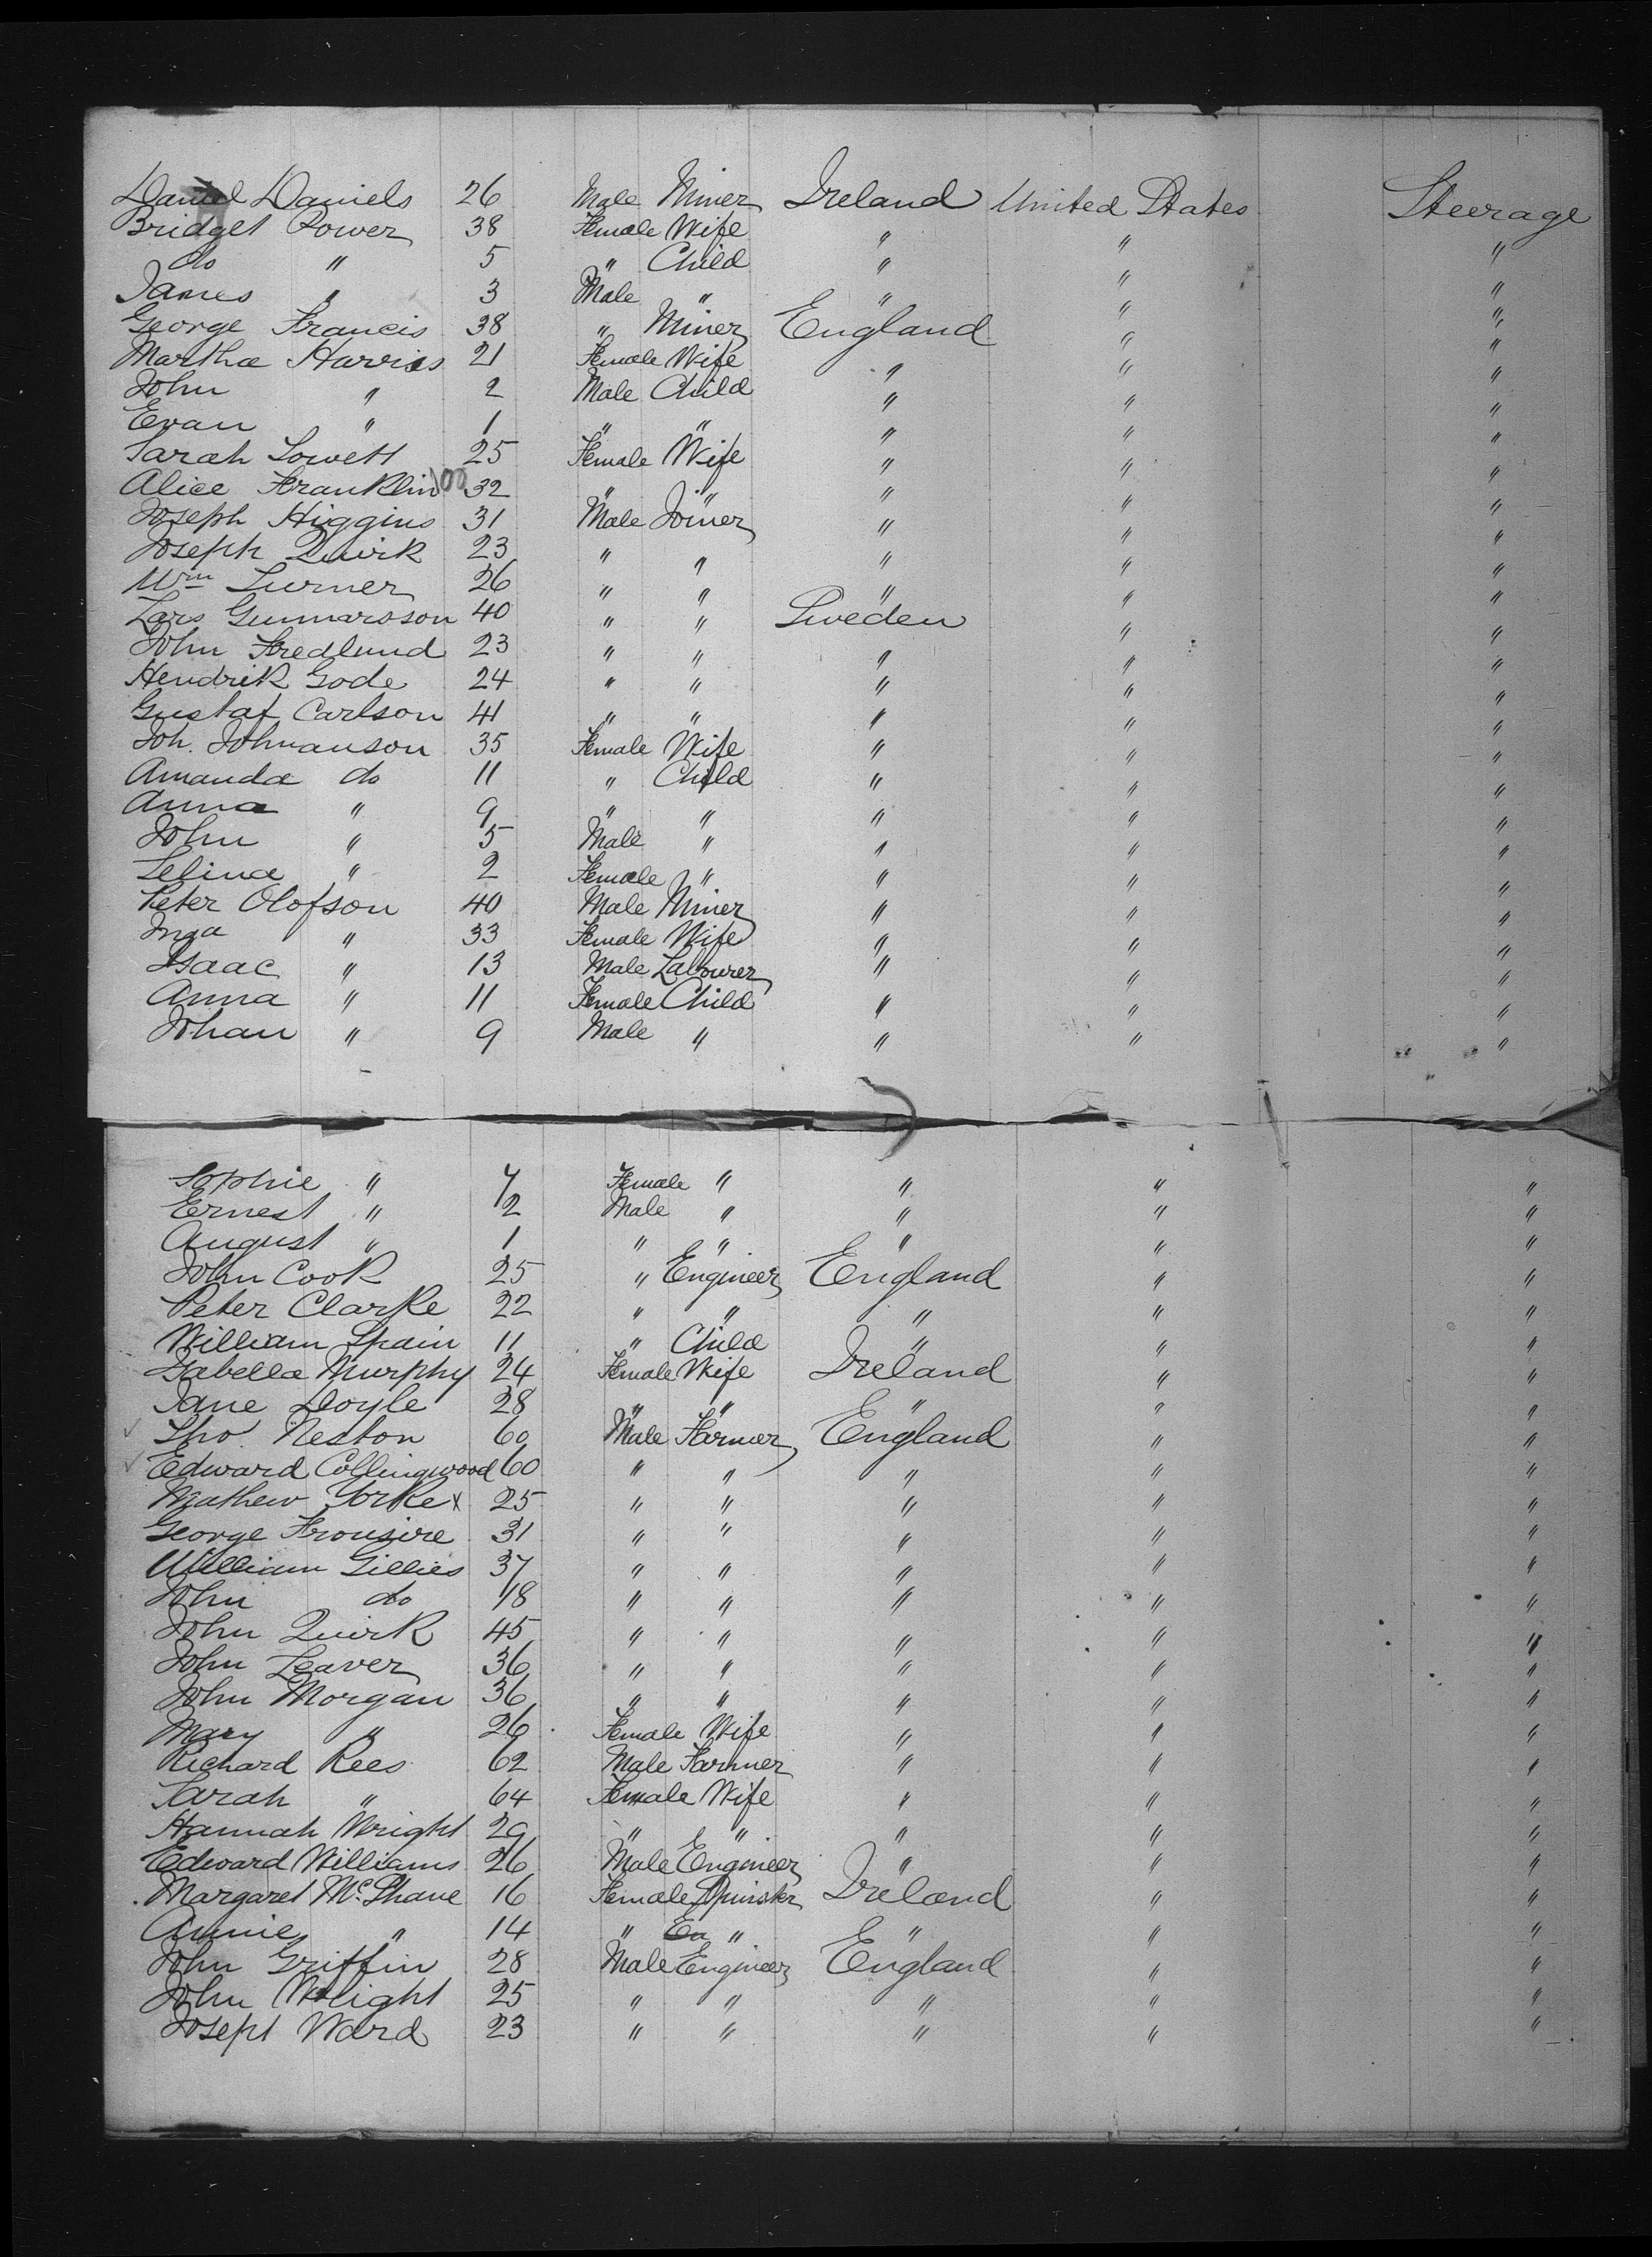 Daniel Daniels 26 Male Miner Ireland United States Steerage
Bridget Power 38 Female Wife " " "
do " 5 " Child " " "
James " 3 Male " " " "
George Francis 38 " Miner England " "
Martha Harriss 21 Female Wife " " "
John " 2 Male Child " " "
Evan " 1 " " " " "
Sarah Lowett 25 Female Wife " " "
Alice Franklin 32 " " " " "
Joseph Higgins 31 Male Joiner " " "
Joseph Quirk 23 " " " " "
Wm Turner 26 " " " " "
Lars Gunnarsson 40 " " Sweden " "
John Fredlund 23 " " " " "
Hendrik Gode 24 " " " " "
Gustaf Carlson 41 " " " " "
Joh. Johnanson 35 Female Wife " " "
Amanda do 11 " Child " " "
Anna " 9 " " " " "
John " 5 Male " " " "
Selina " 2 Female " " " "
Peter Olofson 40 Male Miner " " "
Inga " 33 Female Wife " " "
Isaac " 13 Male Labourer " " "
Anna " 11 Female Child " " "
Johan " 9 Male " " " "
Sophie " 7 Female " " " "
Ernest " 2 Male " " " "
August " 1 " " " " "
John Cook 25 " Engineer England " "
Peter Clarke 22 " " " " "
William Spain 11 " Child " " "
Isabella Murphy 24 Female Wife Ireland " "
Jane Doyle 28 " " " " "
Tho. Neston 60 Male Farmer England " "
Edward Collingwood 60 " " " " "
Mathew Yorke x 25 " " " " "
George 31 " " " " "
William Gillies 37 " " " " "
John do 18 " " " " "
John Quirk 45 " " " " "
John Leaver 36 " " " " "
John Morgan 36 " " " " "
Mary " 26 Female Wife " " "
Richard Rees 62 Male Farmer " " "
Sarah " 64 Female Wife " " "
Hannah Wright 29 " " " " "
Edward Williams 26 Male Engineer " " "
Margaret McShane 16 Female Spinster Ireland " "
Annie " 14 " " " " "
John Griffin 28 Male Engineer England " "
John Wright 25 " " " " "
Joseph Ward 23 " " " " "